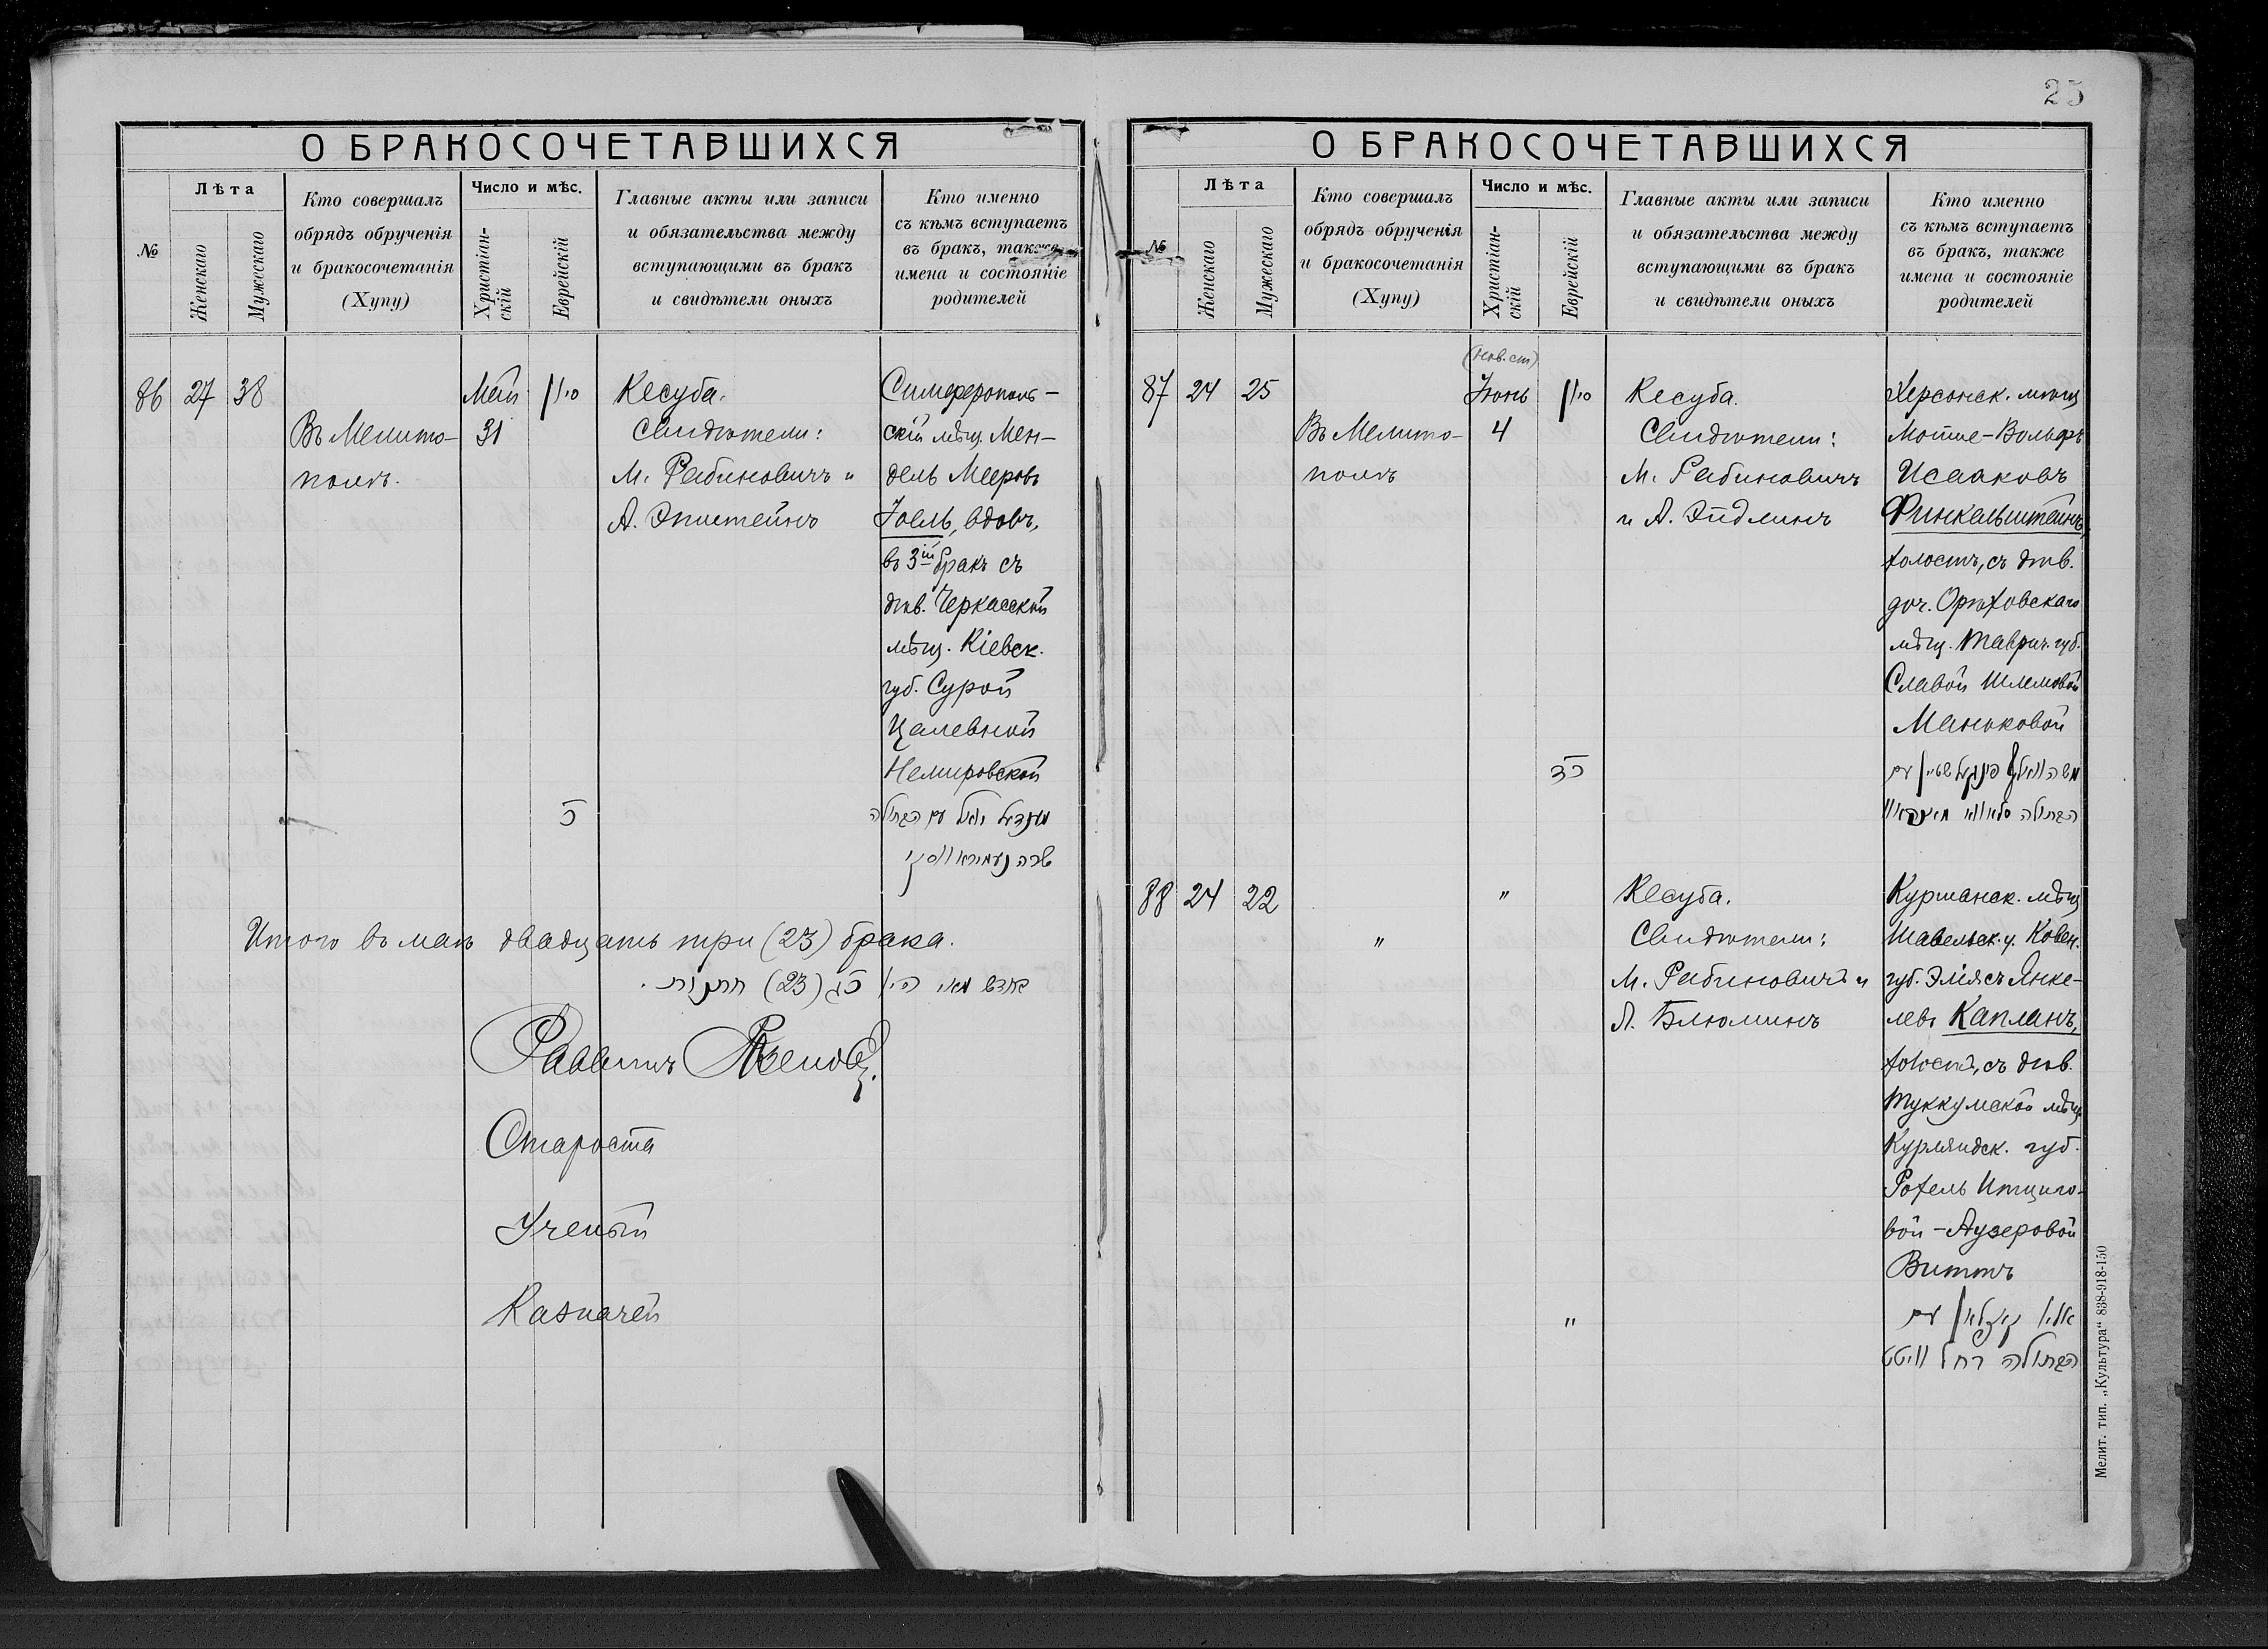 25
О БРАКОСОЧЕТАВШИХСЯ
№
Лѣта
Женскаго
Мужескаго
Кто совершалъ
обрядъ обрученія
и бракосочетанія
(Хупу)
Число и мѣс.
Христіан-
скій
Еврейскій
Главные акты или записи
и обязательства между
вступающими въ бракъ
и свидѣтели оныхъ
Кто именно
съ кѣмъ вступаетъ
въ бракъ, также
имена и состояніе
родителей
86 27 38
Въ Мелито-
полѣ.
Май
31
סיון
ב
Кесуба.
Свидѣтели:
М. Рабиновичъ и
А. Эпштейнъ
Симферополь-
скій мѣщ. Мен-
дель Мееровъ
Іоель, вдовъ,
въ 3ій бракъ съ
дѣв. Черкасской
мѣщ. Кіевск.
губ. Сурой
Цалевной
Немировской
מענדל יואל עם הבתולה
שרה נעמיראווסקי
Итого въ маѣ двадцать три (23) брака.
בחדש מאי היו כג (23) חתנות.
Раввинъ
Староста
Ученый
Казначей
О БРАКОСОЧЕТАВШИХСЯ
№
Лѣта
Женскаго
Мужескаго
Кто совершалъ
обрядъ обрученія
и бракосочетанія
(Хупу)
Число и мѣс.
Христіан-
скій
Еврейскій
Главные акты или записи
и обязательства между
вступающими въ бракъ
и свидѣтели оныхъ
Кто именно
съ кѣмъ вступаетъ
въ бракъ, также
имена и состояніе
родителей
87 24 25
Въ Мелито-
полѣ
(нов. ст)
Іюнь
4
סיון
Кесуба.
Свидѣтели:
М. Рабиновичъ
и А. Эйдлинъ
Херсонск. мѣщ
Мошше-Вольфъ
Исааковъ
Финкельштейнъ,
холостъ, съ дѣв.
доч. Орѣховскаго
мѣщ. Таврич. губ.
Славой Шлемовой
Маньковой
משה וואלף פינקלשטיין עם
הבתולה סלאווא מאנקאוו
88 24 22
"
"
"
Кесуба.
Свидѣтели:
М. Рабиновичъ и
Л. Блюминъ
Куршанск. мѣщ
Шавельск. у. Ковен.
губ. Эліясъ Янке-
левъ Капланъ,
холостъ, съ дѣв.
Туккумской мѣщ
Курляндск. губ.
Рохель Ицико-
вой-Лузеровой
Виттъ
אליו קאפלאן עם
הבתולה רחל וויטט
Мелит. тип. „Культура“ 838-918-150